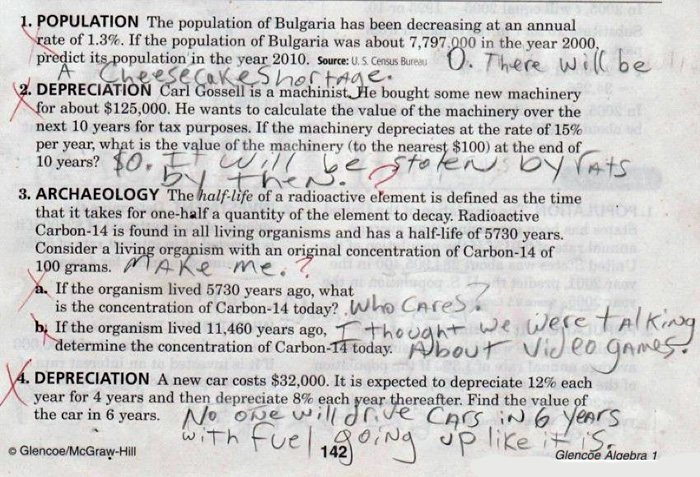 1. POPULATION The population of Bulgaria has been decreasing at an annual
rate of 1.3%. If the population of Bulgaria was about 7,797,000 in the year 2000,
predict its population in the year 2010. Source: U. S. Census Bureau O. There will be
A Cheesecake Shortage.
2. DEPRECIATION Carl Gossell is a machinist. He bought some new machinery
for about $125,000. He wants to calculate the value of the machinery over the
next 10 years for tax purposes. If the machinery depreciates at the rate of 15%
per year, what is the value of the machinery (to the nearest $100) at the end of
10 years? $0. It will be stolen by rats
by then. ?
3. ARCHAEOLOGY The half-life of a radioactive element is defined as the time
that it takes for one-half a quantity of the element to decay. Radioactive
Carbon-14 is found in all living organisms and has a half-life of 5730 years.
Consider a living organism with an original concentration of Carbon-14 of
100 grams. Make me. ?
a. If the organism lived 5730 years ago, what
is the concentration of Carbon-14 today? Who cares. ?
b. If the organism lived 11,460 years ago, I thought we were talking
determine the concentration of Carbon-14 today. About video games.
4. DEPRECIATION A new car costs $32,000. It is expected to depreciate 12% each
year for 4 years and then depreciate 8% each year thereafter. Find the value of
the car in 6 years. No one will drive cars in 6 years
with fuel going up like it is.
© Glencoe/McGraw-Hill 142 Glencoe Algebra 1